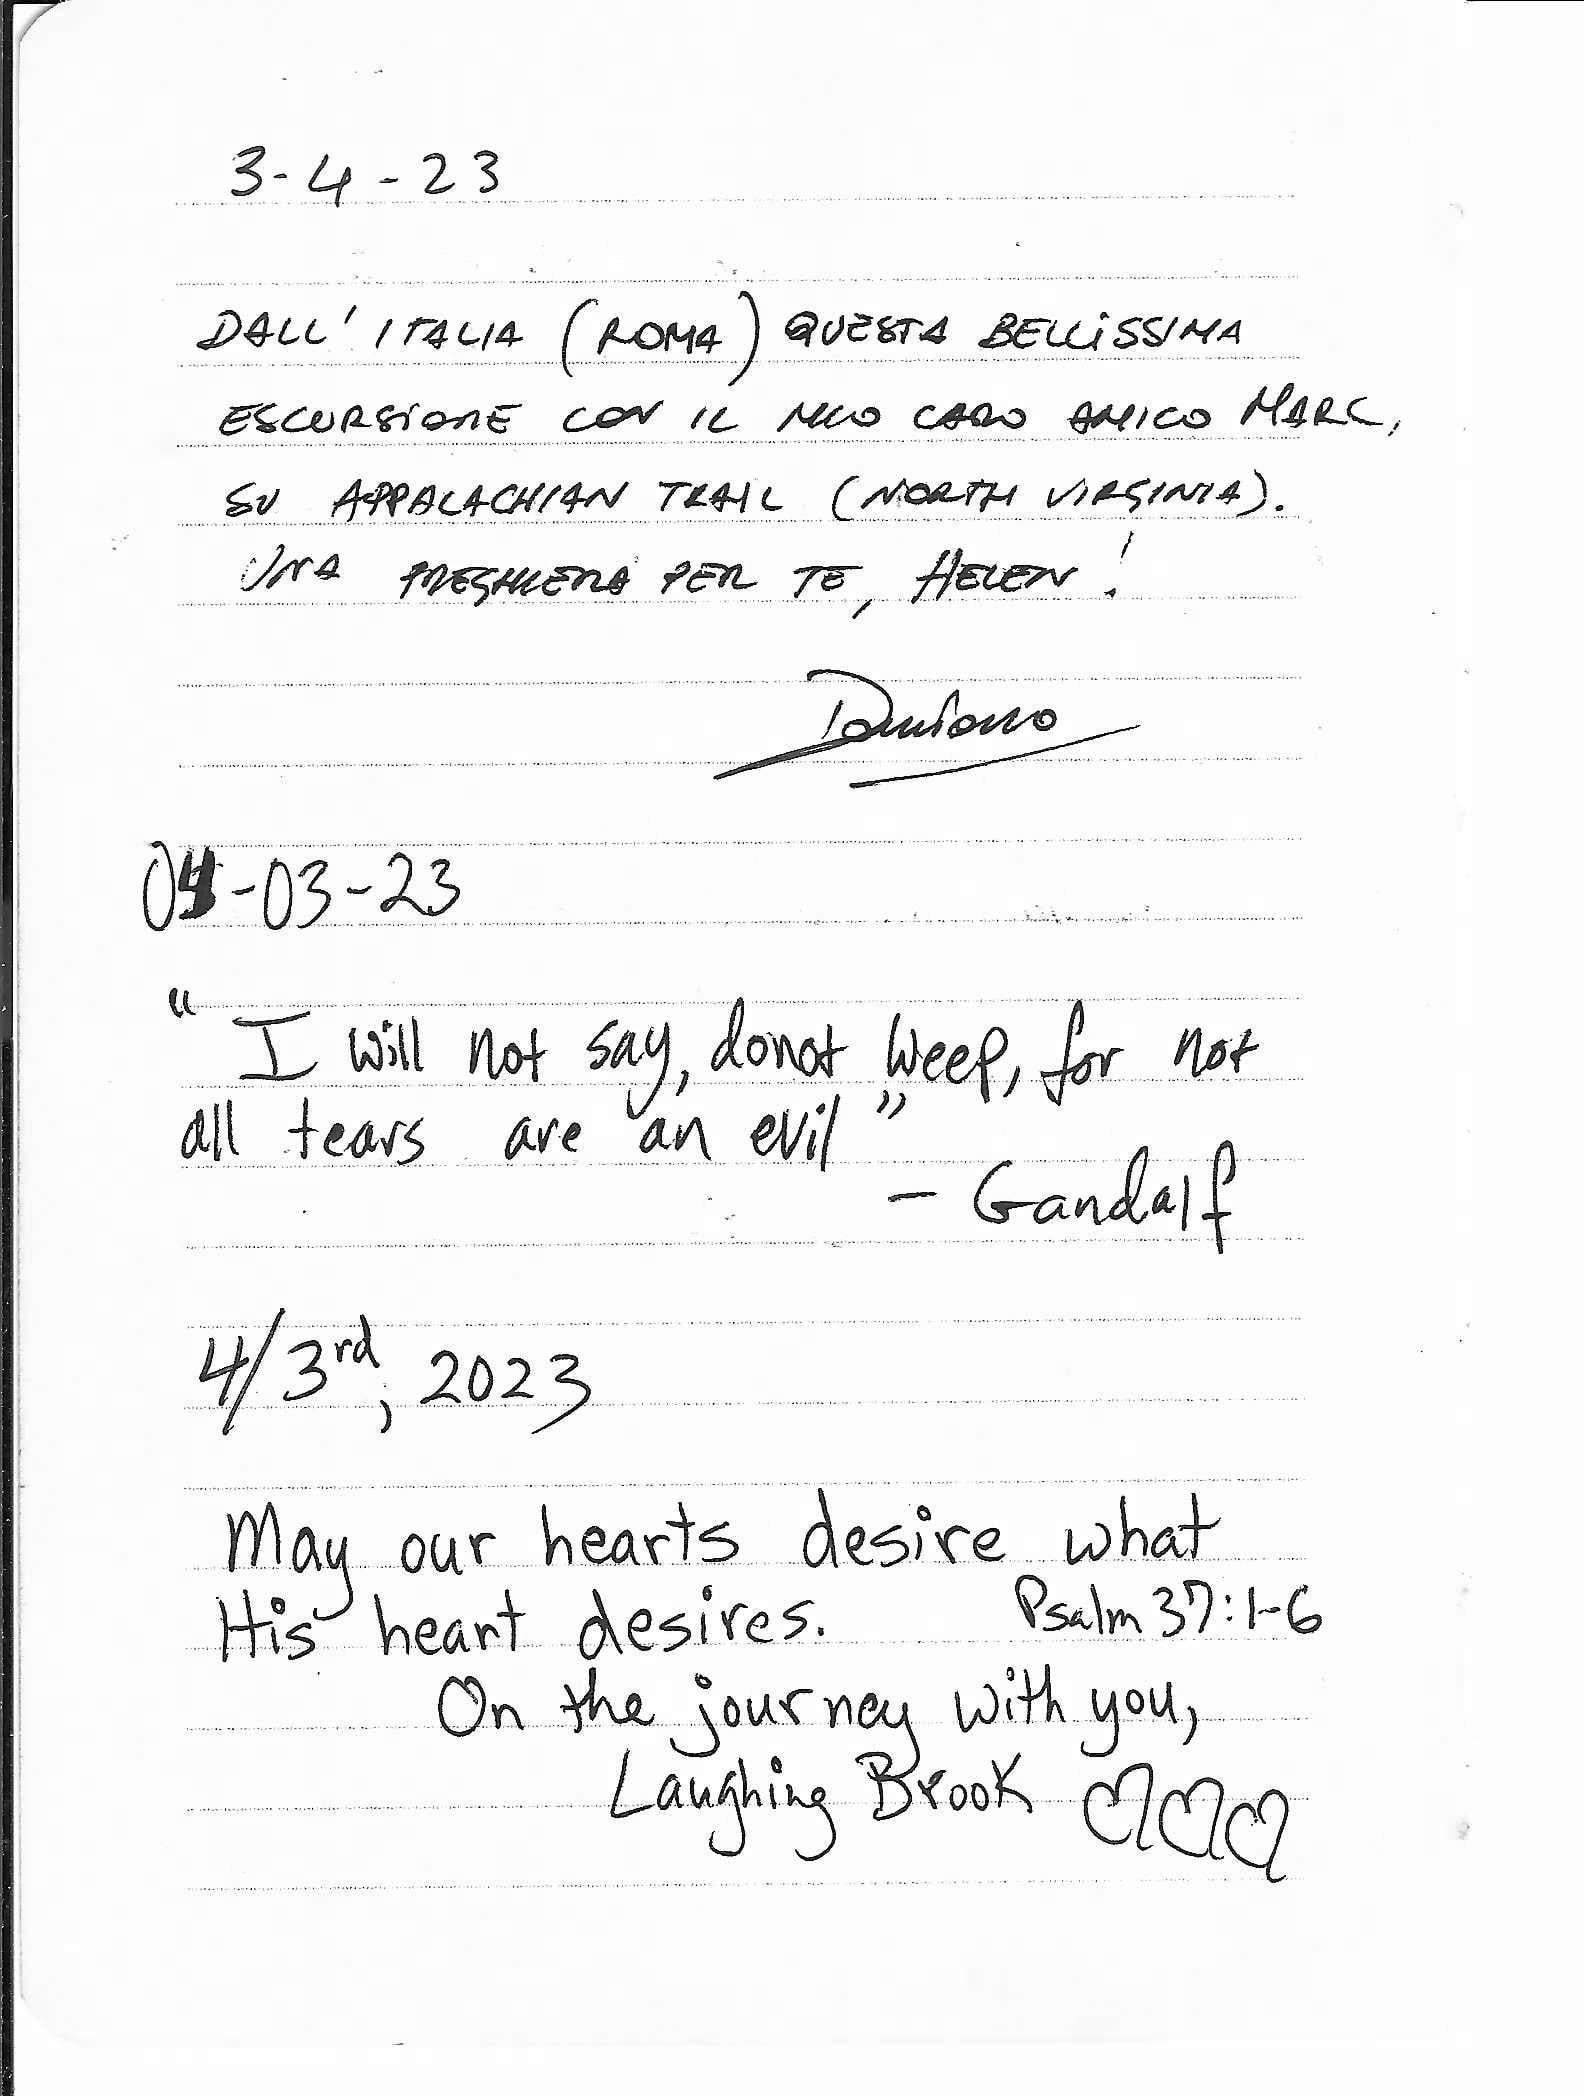 3-4-23
DALL' ITALIA (ROMA) QUESTA BELLISSIMA
ESCURSIONE CON IL MIO CARO AMICO MARC,
SU APPALACHIAN TRAIL (NORTH VIRGINIA).
UNA PREGHIERA PER TE, HELEN!
Damiano
04-03-23
"I will not say, donot weep, for not
all tears are an evil"
- Gandalf
4/3rd, 2023
May our hearts desire what
His heart desires. Psalm 37:1-6
On the journey with you,
Laughing Brook ♡♡♡